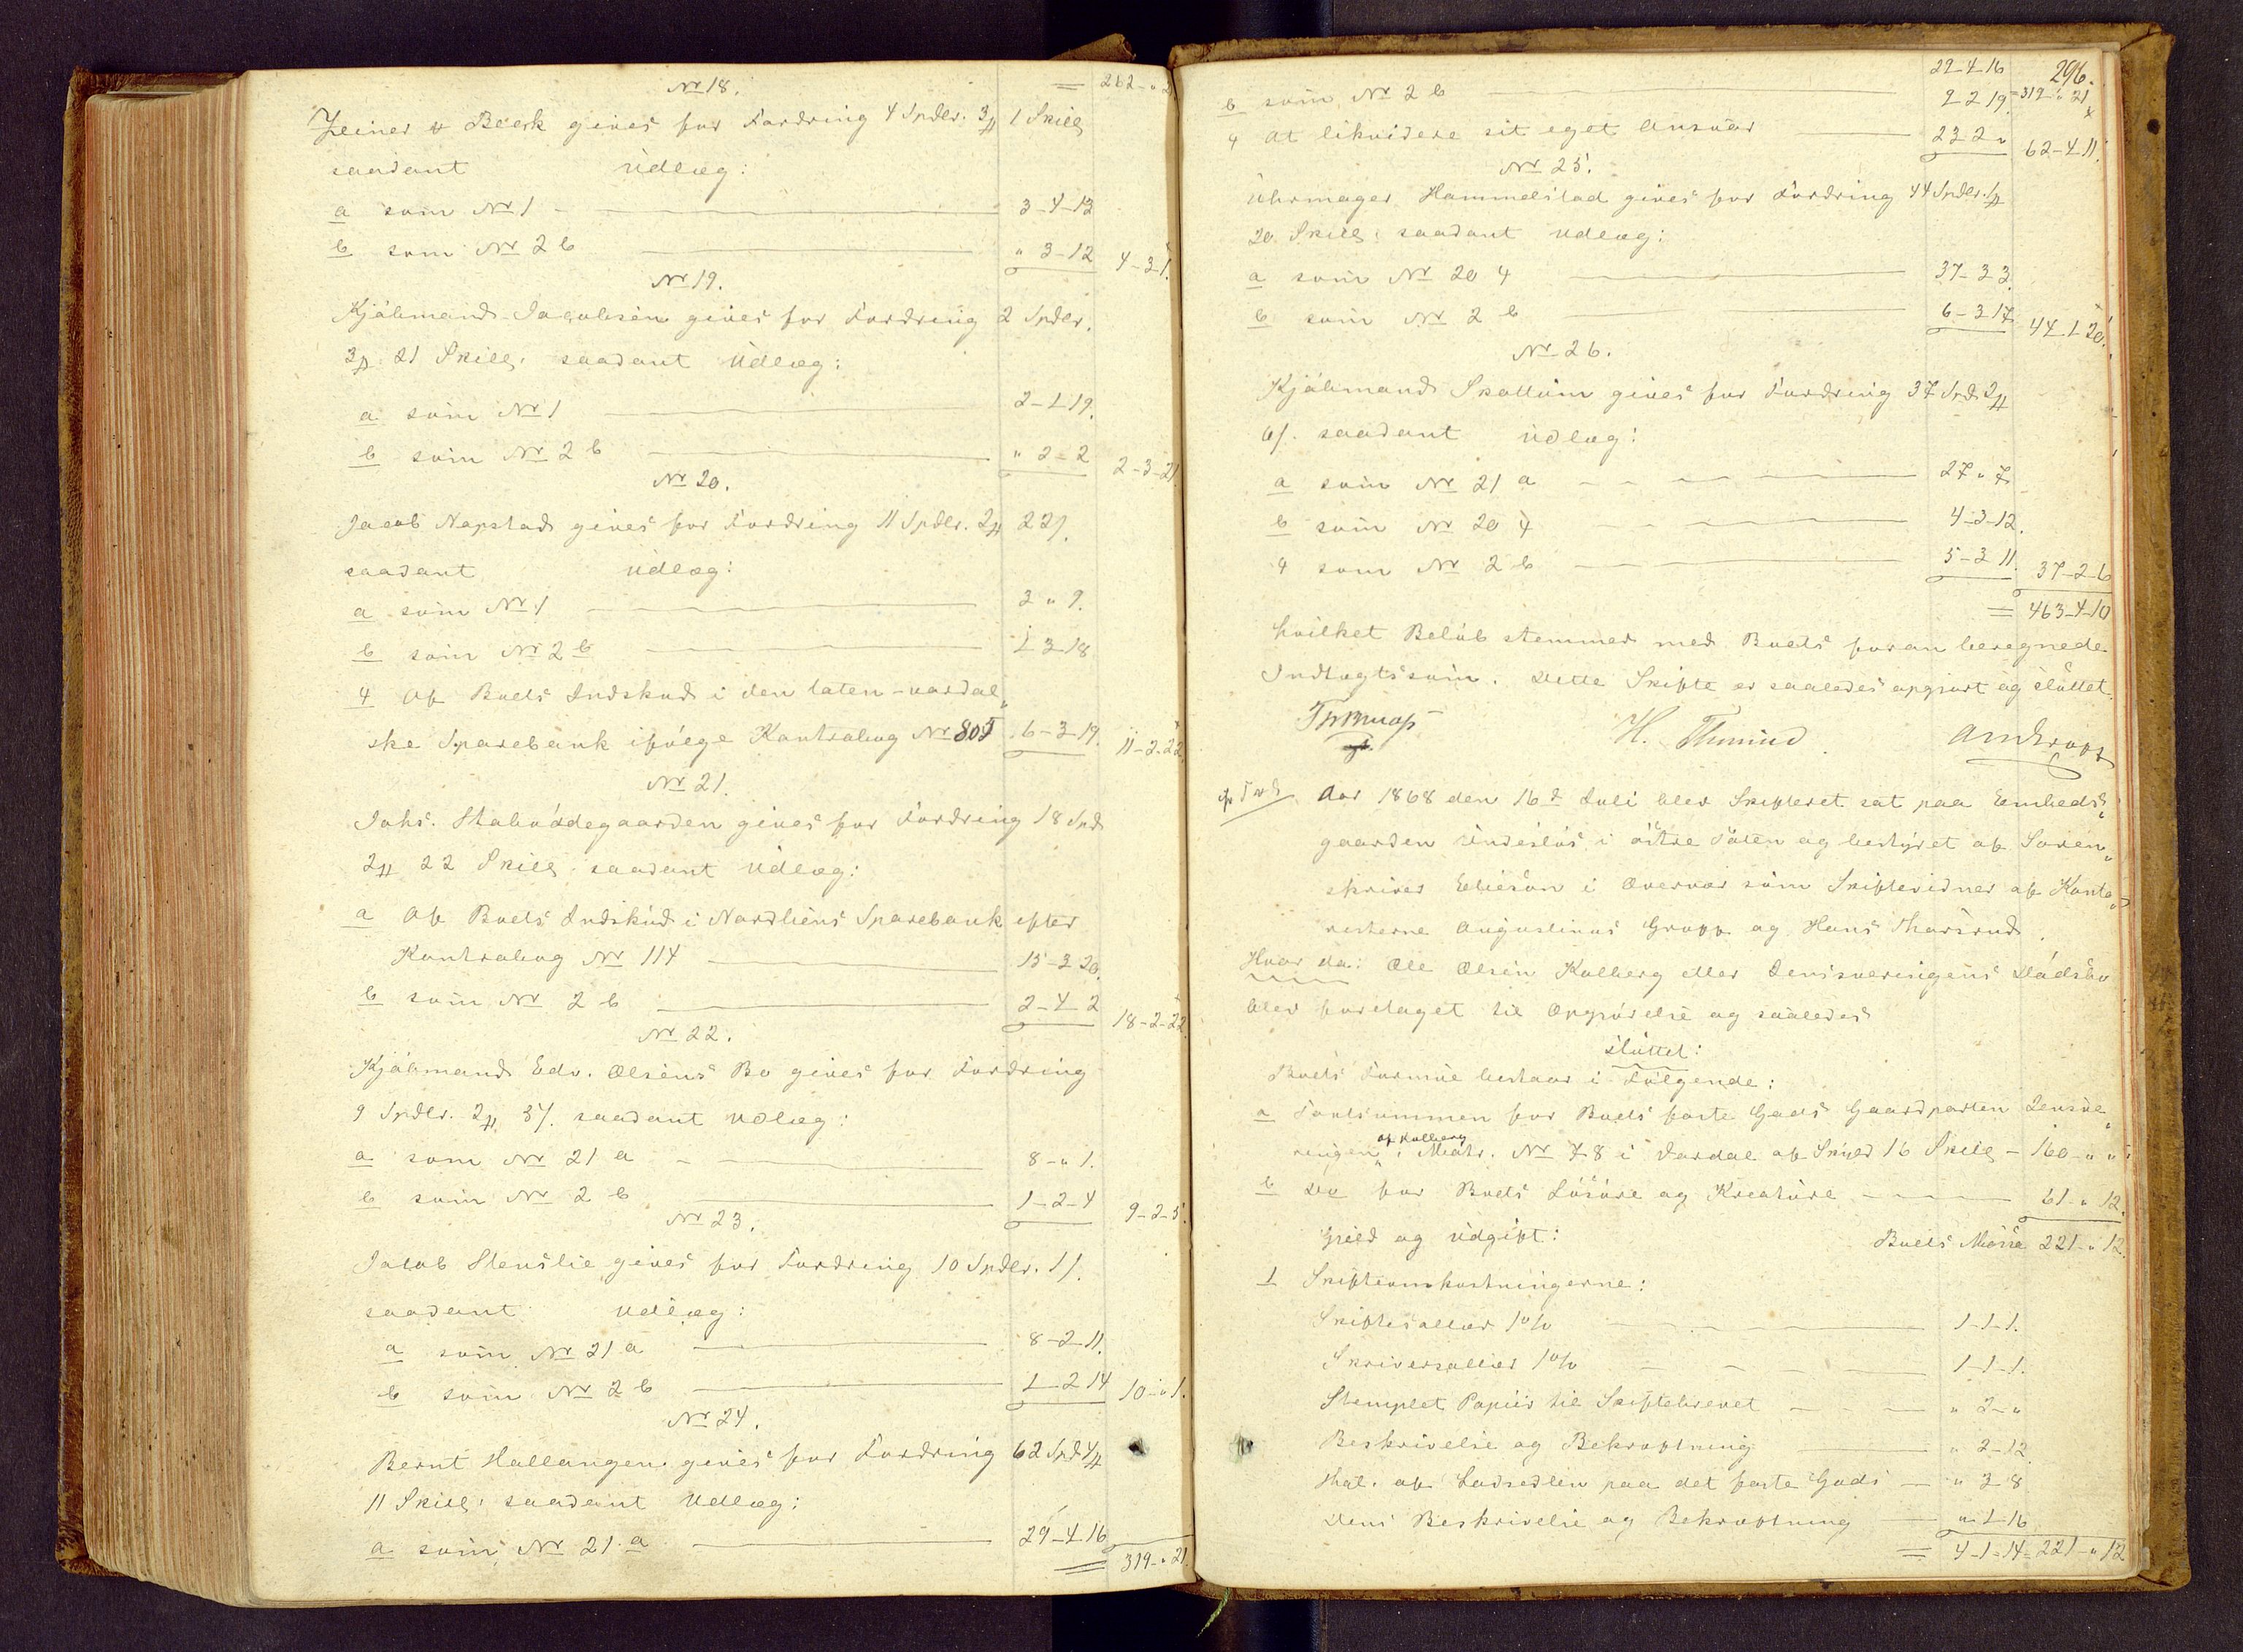 No 18. = 262 - " 2
Zeiner & Beck gives for Fordring 4 Spdlr. 3 # 1 Skill
saadant Udlæg:
a som No 1 3-4-13
b som No 2 b " 3-12 4-3-1.
No 19.
Kjøbmand Jacobsen gives for Fordring 2 Spdlr.
3 # 21 Skill. saadant Udlæg:
a som No 1 2-1-19.
b som No 2 b " 2-2 2-3-21
No 20.
Jacob Napstad gives for Fordring 11 Spdlr. 2 # 22 /.
saadant Udlæg:
a som No 1 3 " 9.
b som No 2 b 1 3 18
c Af Boets Indskud i den toten-vardal„
ske Sparebank ifølge Kontrabog No 805 6-3-19. 11-2-22
No 21.
Johs. gives for Fordring 18 Spd
2 # 22 Skill. saadant Udlæg:
a Af Boets Indskud i Nordliens Sparebank efter
Kontrabog No 114 15-3 20.
b som No 2 b 2-4-2 18-2-22
No 22.
Kjøbmand Edv. Olsens Bo gives for Fordring
9 Spdlr. 2 # 5 /. saadant Udlæg:
a som No 21 a 8-"1.
b som No 2 b 1-2-4 9-2-5.
No 23.
Jacob Stenslie gives for Fordring 10 Spdlr. 1 /.
saadant Udlæg:
a som No 21 a 8-2-11.
b som No 2 b 1-2 14 10-"1.
No 24.
Bernt Hallangen gives for Fordring 62 Spd 4 #
11 Skill. saadant Udlæg:
a som No 21 a 29-4-16
= 319-"21.
29-4-16 296.
b som No 2 b 9 2 19. = 319 " 21
c At likvidere sit eget Ansvar 23 2 " 62-4 11.
No 25.
Uhrmager Hammelstad gives for Fordring 44 Spdlr. 1 #
20 Skill. saadant Udlæg:
a som No 20 c 37-3 3.
b som No 2 b 6-3 17 44-1 20.
No 26.
Kjøbmand Skattum gives for Fordring 37 Spd. 2 #
6 /. saadant Udlæg:
a som No 21 a 27 " 7
b som No 20 c 4-3-12.
c som No 2 b 5-3 11. 37-2-6
= 463-4-10
hvilket Beløb stemmer med Boets foran beregnede
Indtægtssum. Dette Skifte er saaledes opgjort og sluttet.
H. AndGropp
Aar 1868 den 16de Juli blev Skifteret sat paa Embeds„
gaarden Sindesløs i østre Toten og bestyret af Soren„
skriver Ellieson i Overvær som Skiftevidner af Konto„
risterne Augustinus Gropp og Hans Thorsrud.
Hvor da: Ole Olsen Kolberg eller Lensvevigens Dødsbo
blev foretaget til Opgjørelse og saaledes
sluttet:
Boets Formue bestaar i Følgende:
a Boets faste Gods Gaardparten Lensve„
vigen af Kolberg, Matr. No 78 i Vardal af Skyld 16 Skill - 160-" "
b Do for Boets Løsøre og Kreature 61-" 12.
Gjeld og Udgift: Boets Masse 221-"12.
1 Skifteomkostningerne:
Skiftesallær 1 % 1-1-1.
Skriversallær 1 % 1-1-1.
Stemplet Papiir til Skiftebrevet " 2-"
Beskrivelse og Bekræftning " 2-12.
Thgl. af paa det faste Gods " 3 8
Dens Beskrivelse og Bekræftning " 1-16
= 4-1-14 = 221-"12